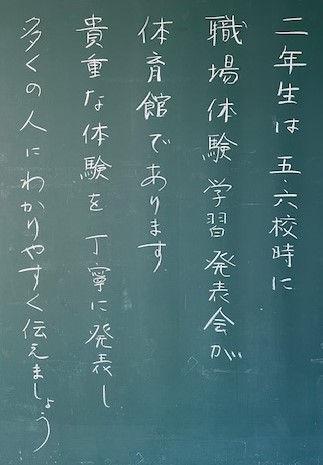 二年生は五、六校時に
職場体験学習発表会が
体育館であります
貴重な体験を丁寧に発表し
多くの人にわかりやすく伝えましょう